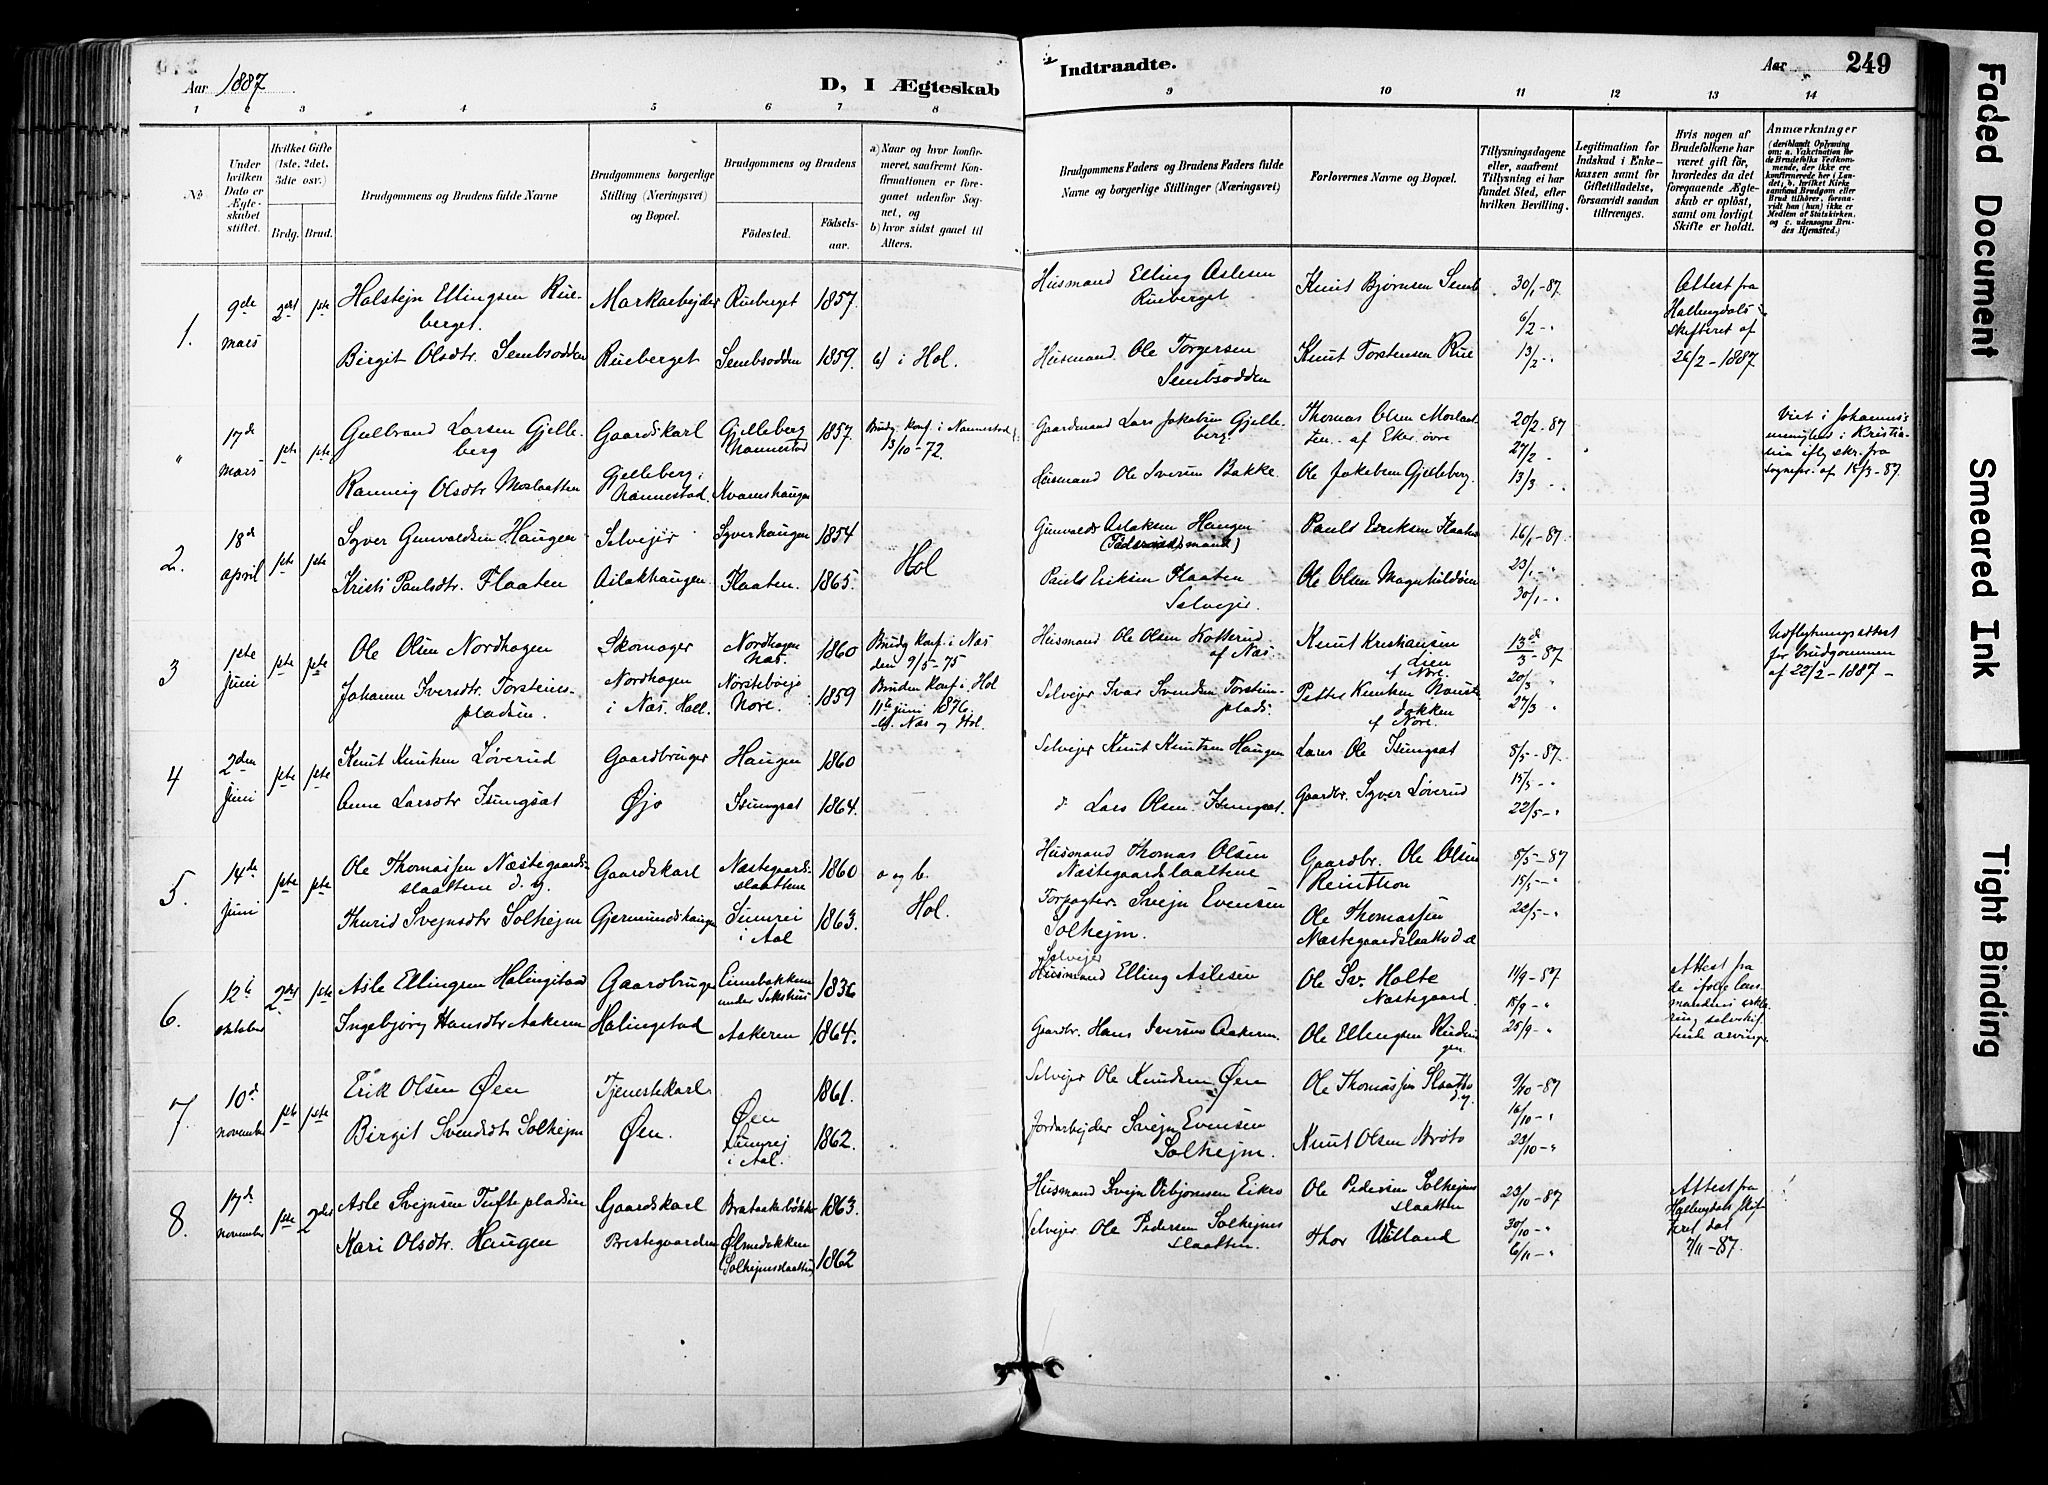 Aar 1887
D, I Ægteskab
Indtraadte.
Aar
249
1 2 3 4 5 6 7 8 9 10 11 12 13 14
№
Under hvilken Dato er Ægteskabet stiftet.
Hvilket Gifte (1ste, 2det, 3die osv.)
Brdg. Brud.
Brudgommens og Brudens fulde Navne
Brudgommens borgerlige Stilling (Næringsvei) og Bopæl.
Brudgommens og Brudens
Fødested.
Fødselsaar.
a) Naar og hvor konfirmeret, saafremt Konfirmationen er foregaaet udenfor Sognet, og
b) hvor sidst gaaet til Alters.
Brudgommens Faders og Brudens Faders fulde Navne og borgerlige Stillinger (Næringsvei)
Forlovernes Navne og Bopæl.
Tillysningsdagene eller, saafremt Tillysning ei har fundet Sted, efter hvilken Bevilling.
Legitimation for Indskud i Enkekassen samt for Giftetilladelse, forsaavidt saadan tiltrænges.
Hvis nogen af Brudefolkene har været gift før, hvorledes da det foregaaende Ægteskab er opløst, samt om lovligt Skifte er holdt.
Anmærkninger
1. 9de Mars 2det 1ste
Holstejn Ellingsen Rueberget.
Markarbejder Rueberget 1857.
Husmand Elling Aslesen Rueberget
Knut Bjørnsen Semb
30/1-87
6/2 -"
Attest fra Hallingdals skifteret af 26/2-1887
Birgit Olsdtr. Sembsodden
Rueberget Sembsodden 1859. b) i Hol.
Husmand Ole Torgersen Sembsodden
Knut Torstensen Rue
13/2 -"
" 17de Mars 1ste 1ste
Gulbrand Larsen Gjelleberg
Gaardskarl Gjelleberg Nannestad 1857.
Brudg. konf. i Nannestad 13/10-72.
Gaardmand Lars Jakobsen Gjelleberg
Thomas Olsen Moslaatten af Eker. øvre
20/2-87
27/2 -
Viet i Johannes menighed i Kristiania iflg skr. fra sognepr. af 18/3-87.
Ranneig Olsdtr Moslaatten
Gjelleberg, Nannestad. Kvamshaugen
Husmand Ole Iversen Bakke.
Ole Jakobsen Gjelleberg.
13/3 -
2. 18de april 1ste 1ste
Syver Gunvaldsen Haugen
Selvejer Syverhaugen 1854
Hol
Gunvald Aslaksen Haugen
Pauls Eriksen Flaaten
16/1-87.
Kristi Paulsdtr. Flaaten
Aslakhaugen Flaaten. 1865.
Pauls Eriksen Flaaten Selvejer.
Ole Olsen Magnhildøen
23/1 -"
30/1 -"
3 1ste Juni 1ste 1ste
Ole Olsen Nordhagen
Skomager Nordhagen Næs. 1860
Brudg konf. i Næs den 9/5-75
Husmand Ole Olsen Kolterud af Næs.
Knut Kristiansen Lien af Nore.
13de/3-87
20/3 "
Udflytningsattest for brudgommen af 22/2-1887 -
Johanne Iversdtr. Torsteinspladsen.
Nordhagen i Næs. Hall.
Nørstebøejo Nore. 1859
Bruden konf. i Hol 11te juni 1876.
b. Næs og Hol.
Selvejer Ivar Svendsen Torsteinplads.
Petter Knutsen Nørstedokken af Nore.
27/3 "
4 2den Juni 1ste 1ste
Knut Knutsen Løverud
Gaardbruger Haugen 1860
Selvejer Knut Knutsen Haugen
Lars Ole Isungsat
8/5-87.
15/5 - "
Anne Larsdtr Isungsat
Øjo Isungsat 1864.
d. Lars Olsen Isungsat.
Gaardbr. Syver Løverud
22/5 - "
5. 14de Juni 1ste 1ste
Ole Thomassen Næstegaardsslaattene d. y.
Gaardskarl Næstegaardsslaattene 1860
a og b. Hol.
Husmand Thomas Olsen Næstegaardslaattene
Gaardbr. Ole Olsen Reinthon
8/5-87
15/5 - "
Thurid Svejnsdtr Solhejm
Gjermundshaugen Sunrei i Aal 1863.
Forpagter Svejn Evensen Solhejm.
Ole Thomassen Næstegaardslaatto d æ
22/5 - "
6. 12te oktober 2det 1ste
Asle Ellingsen Halingstad
Gaardbruger 1836
Selvejer Husmand Elling Aslesen
Ole Sv. Holte Næstegaard.
11/9-87
18/9 - "
Ingebjørg Hansdtr Aakeren
Halingstad Aakeren 1864.
Gaardbr. Hans Iversen Aakeren.
Ole Ellingsen Rudningen.
25/9 - "
7. 10de november 1ste 1ste
Erik Olsen Øen
Tjenestekarl Øen 1861.
Selvejer Ole Knudsen Øen
Ole Thomassen Slaatto d. y.
9/10-87
16/10 - "
Birgit Svendsdtr Solhejm
Øen. Sunrej i Aal. 1862.
Jordarbejder Svejn Evensen Solhejm.
Knut Olsen Brøto
23/10 - "
8. 17de november 1ste 2det
Asle Svejnsen Tuftepladsen
Gaardskarl 1863.
Husmand Svejn Asbjørnsen Eikro
Ole Pedersen Solhejmsslaatten
23/10-87
Attest fra Hallingdals Skifteret dat 7/11-87.
Kari Olsdtr. Haugen
Prestegaarden Ølmedokken (Solhejmsslaatten) 1862
Selvejer Ole Pedersen Solhejmsslaatten
Thor Villand
30/10 - "
6/11 - "
Faded Document
Smeared Ink
Tight Binding